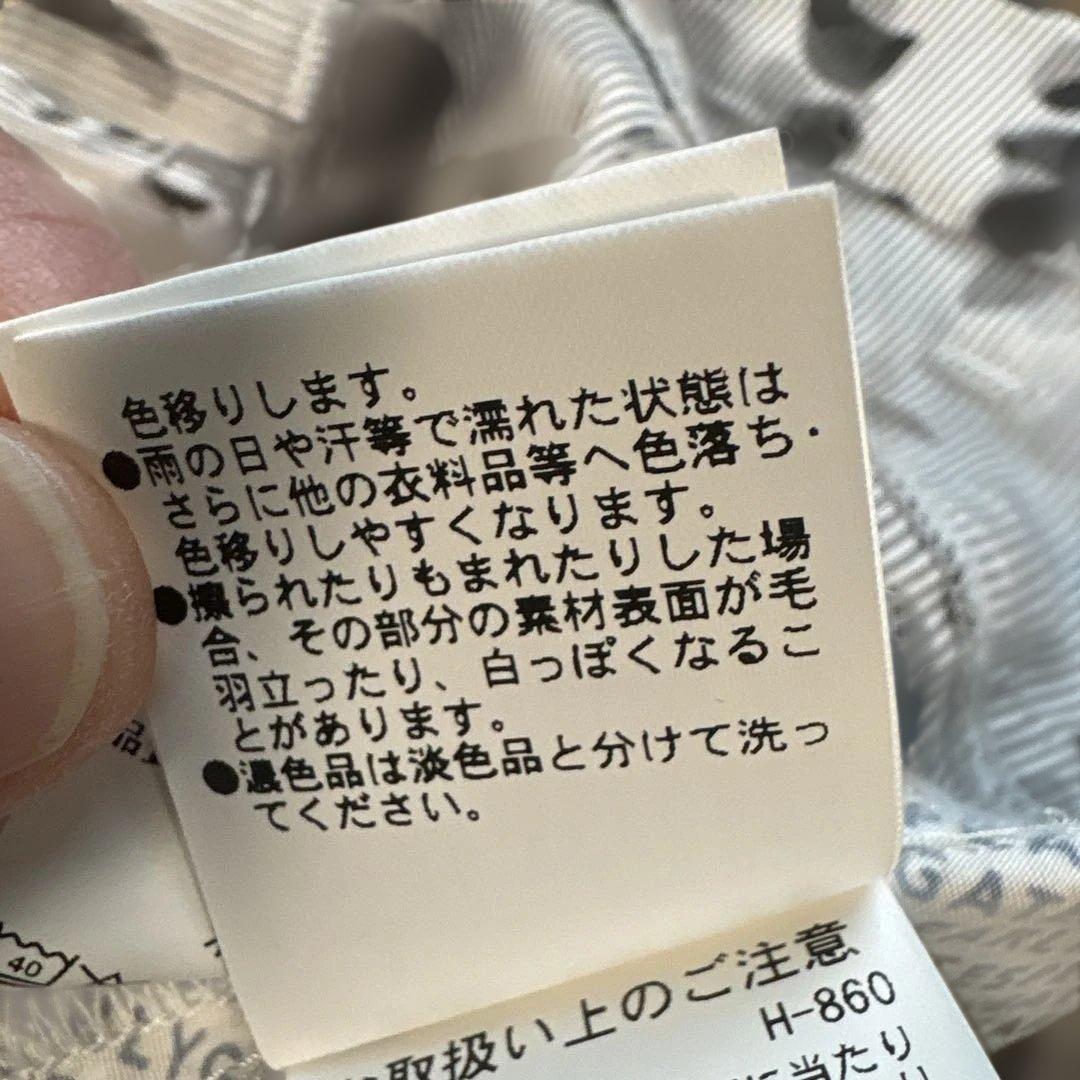 色移りします。
●雨の日や汗等で濡れた状態は
さらに他の衣料品等へ色落ち・
色移りしやすくなります。
●擦られたりもまれたりした場
合、その部分の素材表面が毛
羽立ったり、白っぽくなるこ
とがあります。
●濃色品は淡色品と分けて洗っ
てください。
40
取扱い上のご注意
H-860
に当たり